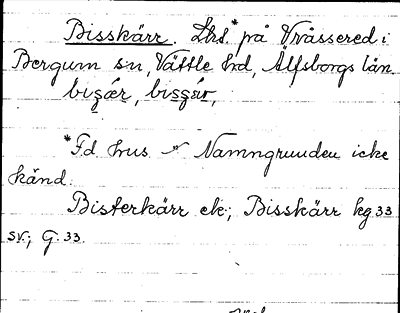 Bisskärr. Lht.* på Vråssered i
Bergum sn, Vättle hd, Älfsborgs län.
bizær, bisgär,
*Fd hus Namngrunden icke
känd.
Bisterkärr ek; Bisskärr kg 33
sv; G. 33.